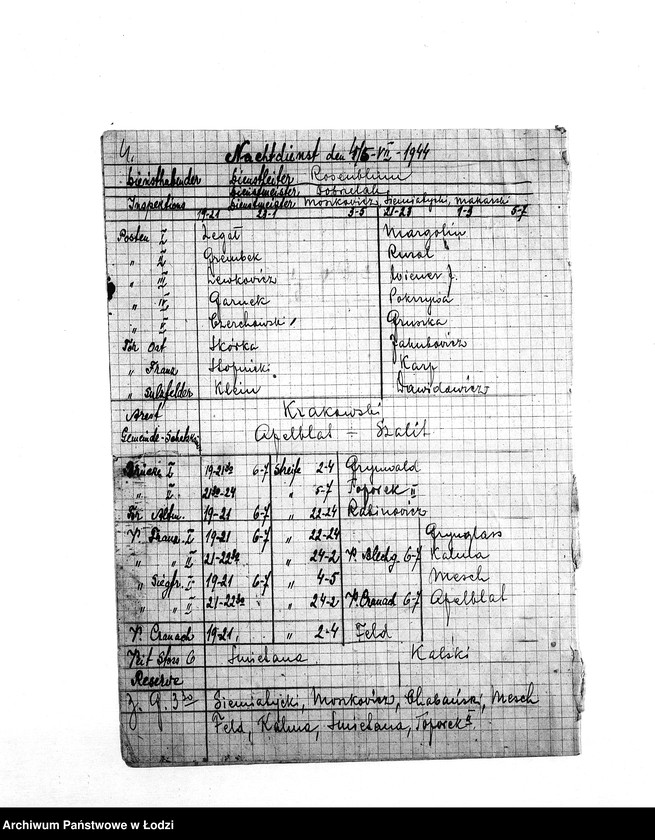 4.
Nachtdienst den 4/5-VII-1944
Diensthabender Dienstleiter Rosenblum
Dienstmeister
Inspektions Dienstmeister Moszkowicz, Siemiatycki,
19-21 23-1 3-5 21-23 1-3 5-7
Posten I Legat Margolin
„ II Grembek Rural
„ III Lewkowicz Wiener J.
„ IV Garnek Pokrzywa
„ V Czerchowski Gruszka
Tor Ost Skórka Jakubowicz
„ Franz Słopiński Karp
„ Sulzfelder Klein Dawidowicz
Arest Krakowski
Gemeinde- Apelblat ÷ Szalit
Brücke I 19-21³⁰ 6-7 Streife 2-4 Grynwald
„ II 21³⁰-24 „ 5-7 Toporek II
Tor Altm. 19-21 6-7 „ 22-24 Rabinowicz
V. Franz. I 19-21 6-7 „ 22-24 Grynglass
„ „ II 21-22³⁰ „ 24-2 V. Blechg. 6-7 Kalma
„ Siegfr. I 19-21 6-7 „ 4-5 Mesch
„ „ II 21-22³⁰ „ 24-2 V. Cranach 6-7 Apelblat
V. Cranach 19-21 „ 2-4 Feld
Veit Stoss 6 Śmietana Kalski
Reserve
Z. G. 3³⁰ Siemiatycki, Moszkowicz, Chabański, Mesch
Feld, Kalma, Śmietana, Toporek II
Archiwum Państwowe w Łodzi